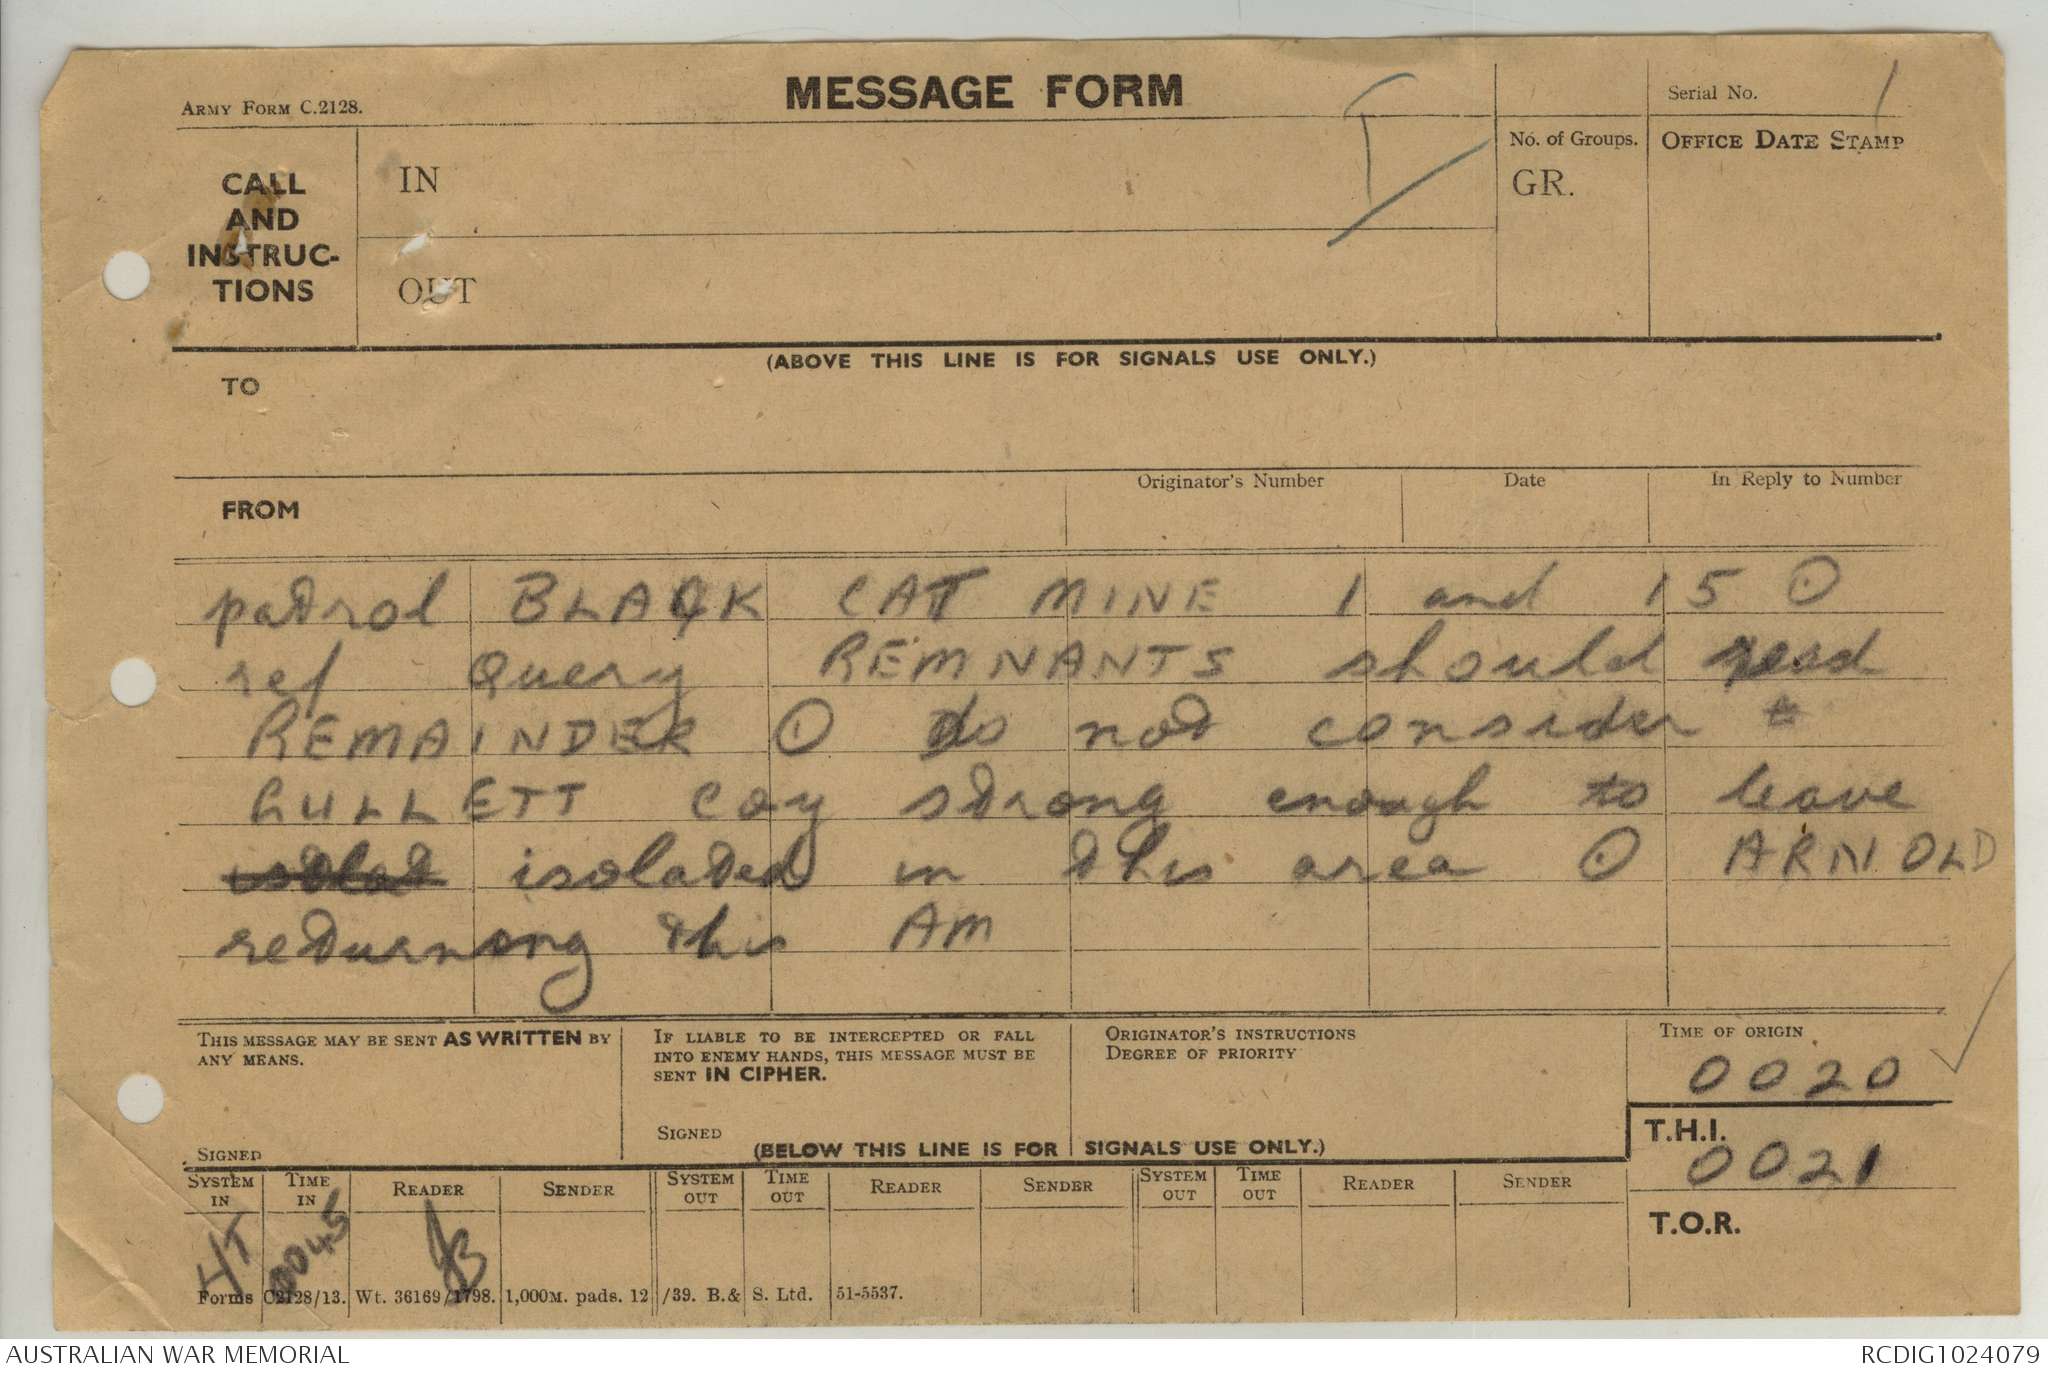 ARMY FORM C.2128.
MESSAGE FORM
I
Serial No. 1
CALL
AND
INSTRUC-
TIONS
IN
OUT
No. of Groups.
GR.
OFFICE DATE STAMP
(ABOVE THIS LINE IS FOR SIGNALS USE ONLY.)
TO
FROM
Originator's Number
Date
In Reply to Number
patrol BLACK CAT MINE 1 and 15 ⊙
ref Query REMNANTS should read
REMAINDER ⊙ do not consider
GULLETT coy strong enough to leave
isolated in this area ⊙ ARNOLD
returning this AM
THIS MESSAGE MAY BE SENT AS WRITTEN BY
ANY MEANS.
SIGNED
IF LIABLE TO BE INTERCEPTED OR FALL
INTO ENEMY HANDS, THIS MESSAGE MUST BE
SENT IN CIPHER.
SIGNED
ORIGINATOR'S INSTRUCTIONS
DEGREE OF PRIORITY
(BELOW THIS LINE IS FOR SIGNALS USE ONLY.)
TIME OF ORIGIN
0020
T.H.I.
0021
T.O.R.
SYSTEM IN
TIME IN
READER
SENDER
SYSTEM OUT
TIME OUT
READER
SENDER
SYSTEM OUT
TIME OUT
READER
SENDER
HT 0045 JB
Forms C2128/13. Wt. 36169/1798. 1,000M. pads. 12/39. B.& S. Ltd. 51-5537.
AUSTRALIAN WAR MEMORIAL
RCDIG1024079